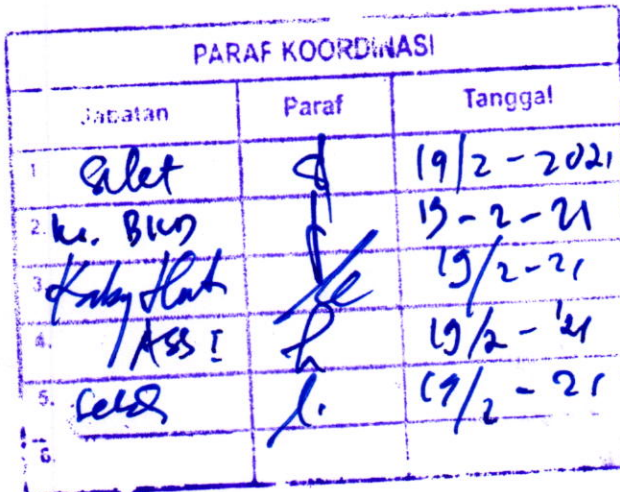 PARAF KOORDINASI
Jabatan Paraf Tanggal
1 19/2-2021
2. Ka. BKD 19-2-21
3. 19/2-21
4. ASS I 19/2-'21
5. 19/2-21
6.